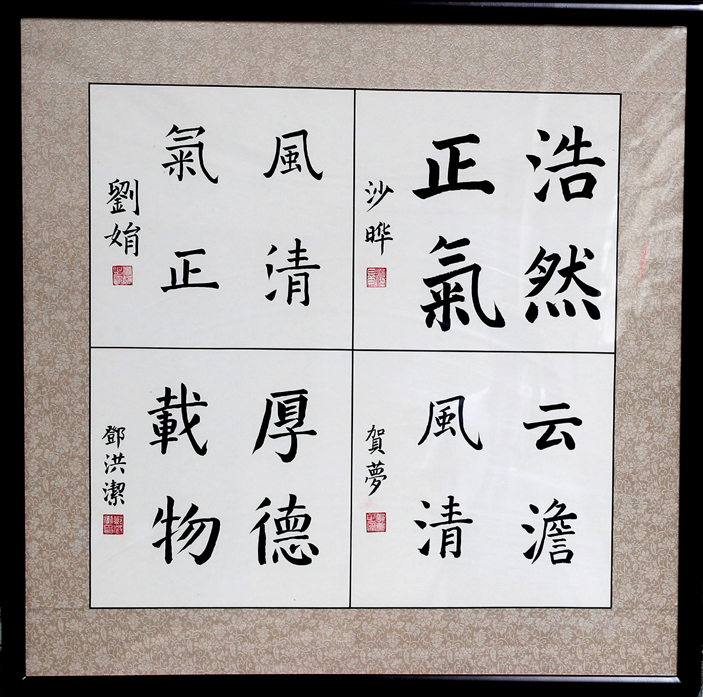 浩然
正氣
沙晔
風清
氣正
劉娟
云澹
風清
賀夢
厚德
載物
鄧洪潔